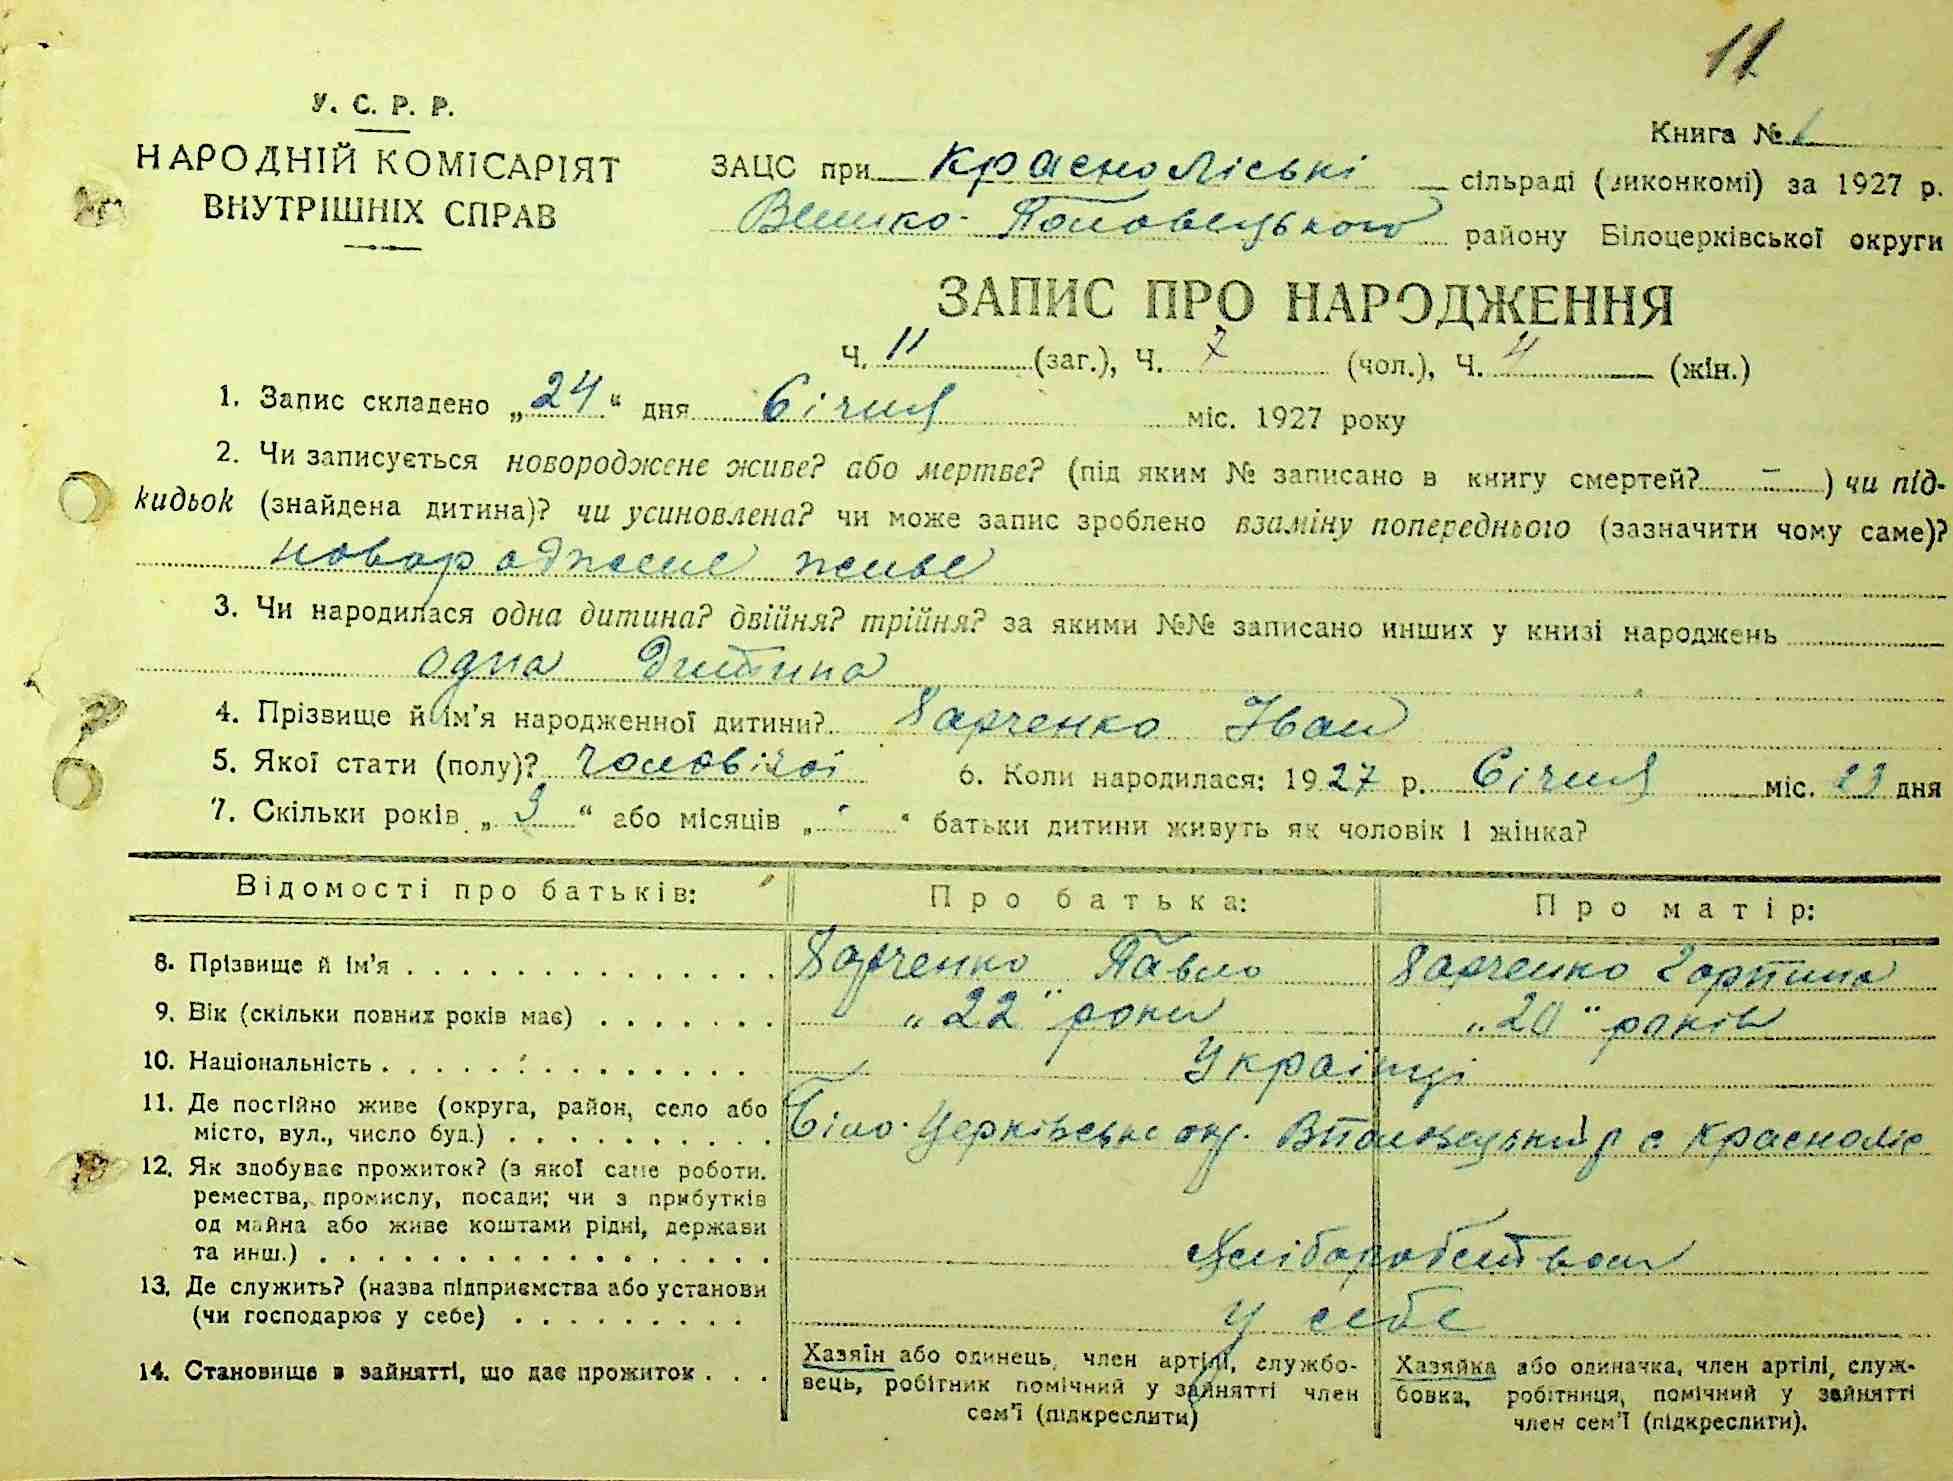 11
У. С. Р. Р.
НАРОДНІЙ КОМІСАРІЯТ
ВНУТРІШНІХ СПРАВ
Книга №
ЗАЦС при Красноліські сільраді (виконкомі) за 1927 р.
Велико-Половецького району Білоцерківської округи
ЗАПИС ПРО НАРОДЖЕННЯ
Ч. 11 (заг.), Ч. 7 (чол.), Ч. 4 (жін.)
1. Запис складено „24“ дня Січня міс. 1927 року
2. Чи записується новороджене живе? або мертве? (під яким № записано в книгу смертей? – ) чи під-
кидьок (знайдена дитина)? чи усиновлена? чи може запис зроблено взаміну попереднього (зазначити чому саме)?
новороджене живе
3. Чи народилася одна дитина? двійня? трійня? за якими №№ записано инших у книзі народжень
одна дитина
4. Прізвище й ім'я народженної дитини? Харченко Іван
5. Якої стати (полу)? чоловічої 6. Коли народилася: 1927 р. Січня міс. 23 дня
7. Скільки років „3“ або місяців „-“ батьки дитини живуть як чоловік і жінка?
Відомості про батьків: Про батька: Про матір:
8. Прізвище й ім'я Харченко Павло Харченко Горпина
9. Вік (скільки повних років має) „22" роки „20" років
10. Національність Українці
11. Де постійно живе (округа, район, село або
місто, вул., число буд.) Біло-Церківське окр. ВПоловецький р с Красноліс
12. Як здобуває прожиток? (з якої саме роботи.
ремества, промислу, посади; чи з прибутків
од майна або живе коштами рідні, держави
та инш.) Хліборобством
13. Де служить? (назва підприємства або установи
(чи господарює у себе) у себе
14. Становище в зайнятті, що дає прожиток
Хазяїн або одинець, член артілі, службо-
вець, робітник помічний у зайнятті член
сем'ї (підкреслити)
Хазяйка або одиначка, член артілі, служ-
бовка, робітниця, помічний у зайнятті
член сем'ї (підкреслити).